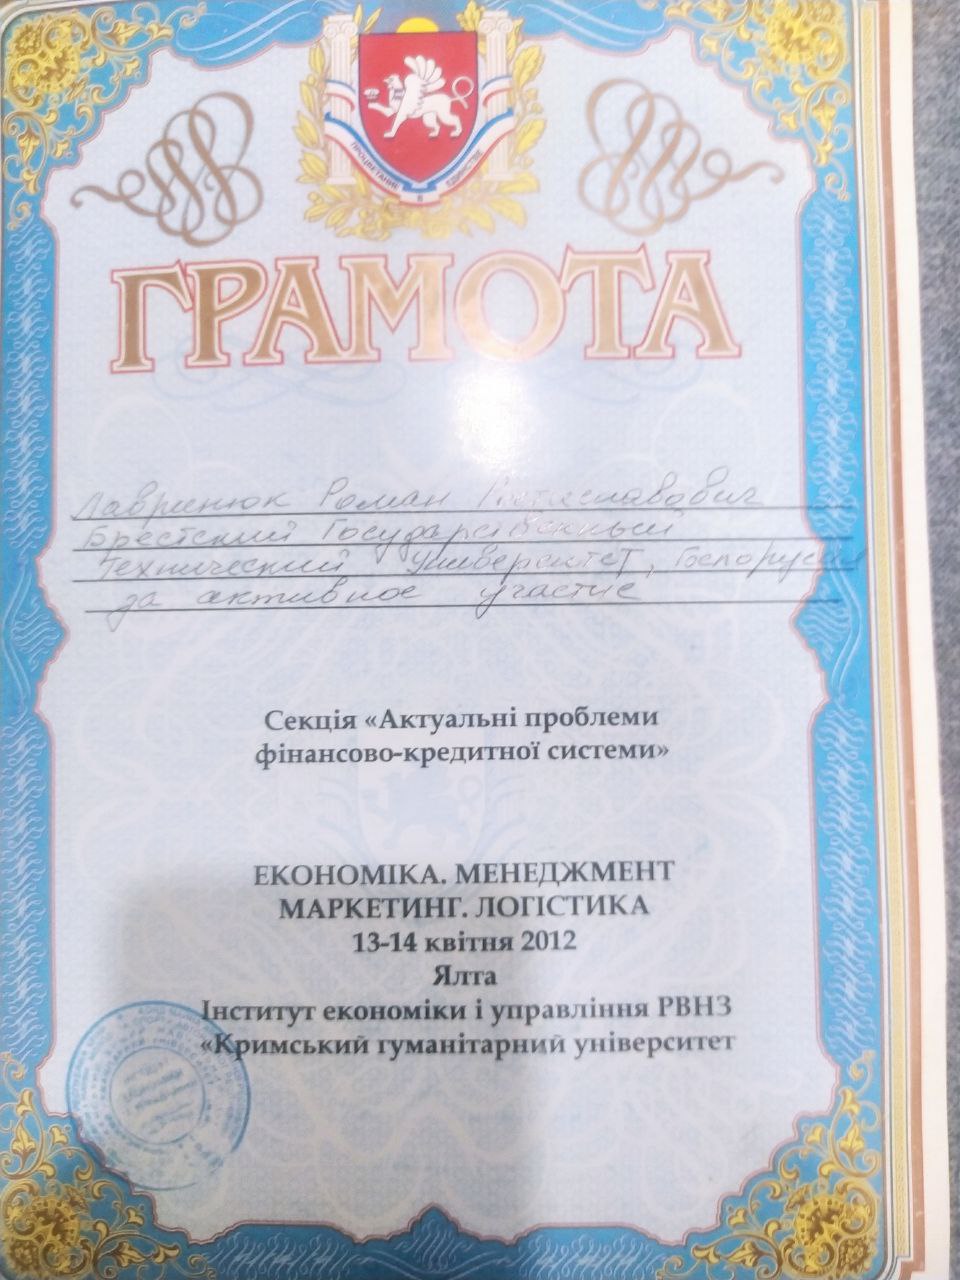 ПРОЦВЕТАНИЕ В ЕДИНСТВЕ
ГРАМОТА
Лавринюк Роман Ростиславович
Брестский Государственный
Технический Университет,
за активное участие
Секція «Актуальні проблеми
фінансово-кредитної системи»
ЕКОНОМІКА. МЕНЕДЖМЕНТ
МАРКЕТИНГ. ЛОГІСТИКА
13-14 квітня 2012
Ялта
Інститут економіки і управління РВНЗ
«Кримський гуманітарний університет